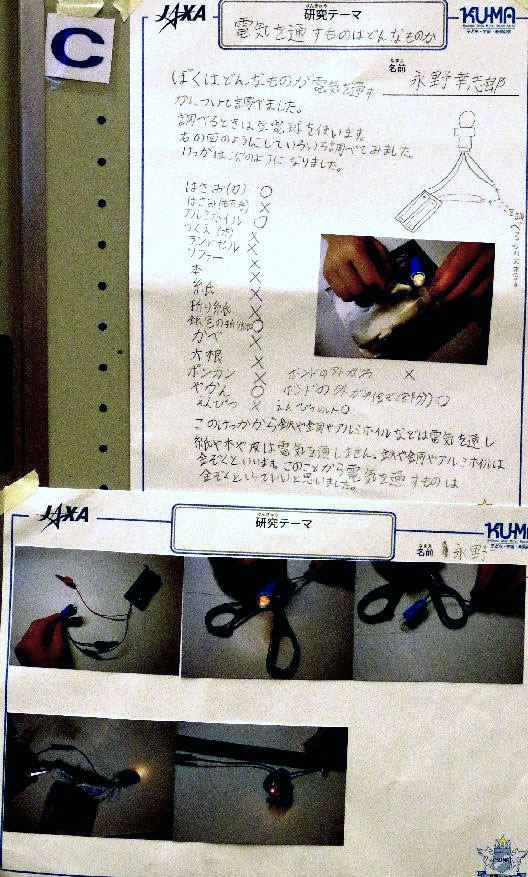 C
JAXA
けんきゅう
研究テーマ
電気を通すものはどんなものか
KU-MA
なまえ
名前 永野
ぼくはどんなものが電気を通す
かについて調べました。
調べるときは豆電球を使います。
右の図のようにしていろいろ調べてみました。
けっかは次のようになりました。
はさみ(刃) ○
はさみ(もち手) ×
アルミホイル ○
つくえ(木) ×
ランドセル ×
ソファー ×
本 ×
紙 ×
折り紙 ×
銀色の折り紙 ○
かべ ×
大根 ×
ポンカン ×
やかん ○
えんぴつ × えんぴつのしん○
このけっかから鉄や金局やアルミホイルなどは電気を通し
紙や木や皮は電気を通しません。鉄や金局やアルミホイルは
金ぞくといいます。このことから電気を通すものは
金ぞくといっていいと思いました。
JAXA
けんきゅう
研究テーマ
KU-MA
なまえ
名前 永野
KU-MA